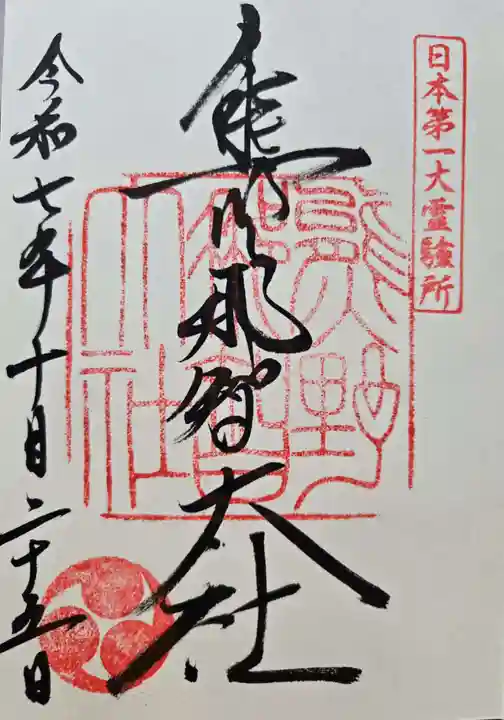 日本第一大霊験所
熊野那智大社
熊野
那智
大社
令和七年十月二十五日